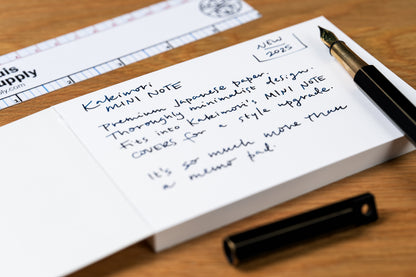 upply
ly.com
NEW
2025
Kakimori
MINI NOTE
Premium Japanese paper.
Thoroughly minimalist design.
Fits into Kakimori's MINI NOTE
COVERS for a style upgrade.
It's so much more than
a memo pad.